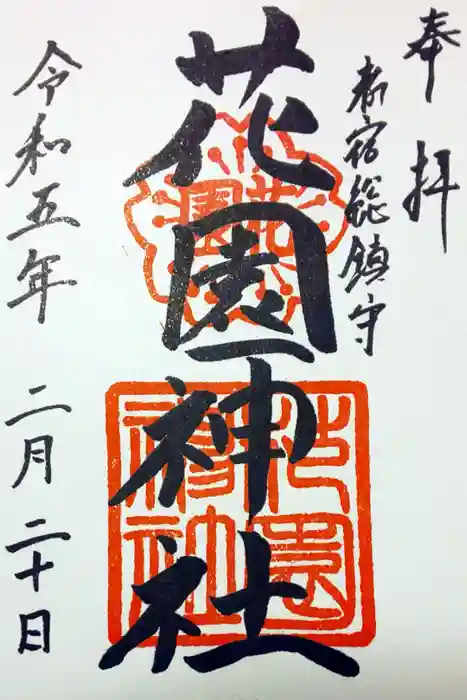 奉拝
新宿総鎮守
花園神社
花園
花園神社
令和五年 二月二十日